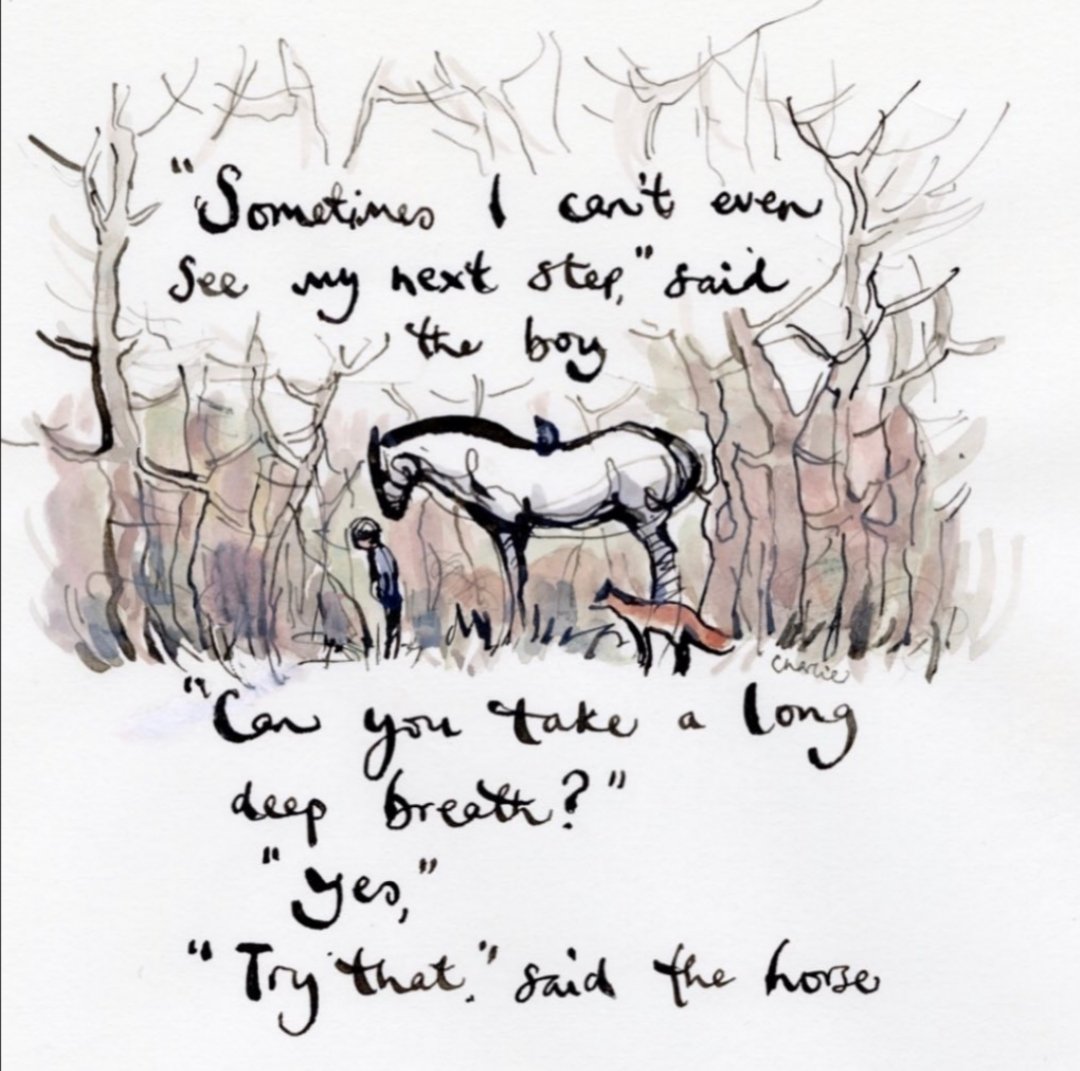 "Sometimes I can't even
see my next step," said
the boy
Charlie
"Can you take a long
deep breath?"
"Yes,"
"Try that." said the horse